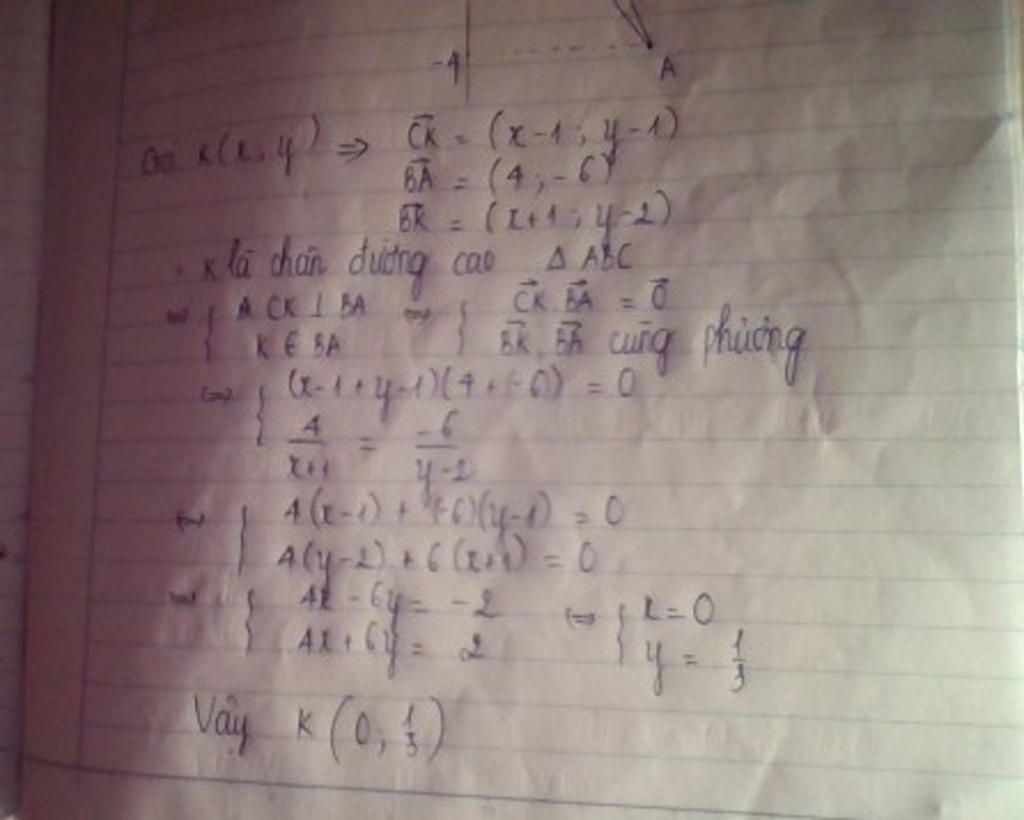 -4 A
Gọi K(x, y) => CK = (x-1; y-1)
BA = (4; -6)
BK = (x+1; y-2)
. K là chân đường cao Δ ABC
<=> { A CK ⊥ BA <=> { CK . BA = 0
K ∈ BA BK, BA cùng phương
<=> { (x-1+y-1)(4+(-6)) = 0
4/(x+1) = -6/(y-2)
<=> { 4(x-1) + (-6)(y-1) = 0
4(y-2) + 6(x+1) = 0
<=> { 4x - 6y = -2 <=> { x = 0
4x + 6y = 2 y = 1/3
Vậy K (0, 1/3)